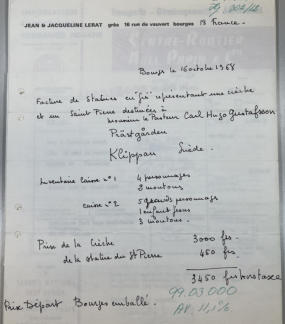 JEAN & JACQUELINE LERAT grès 16 rue du vauvert bourges 18 France.
Bourges le 16 octobre 1968
Facture de Statues en "grès" représentant une crèche
et un Saint Pierre destinées à
monsieur le Pasteur Carl Hugo Gustafsson
Prästgården
Klippan Suède.
Inventaire Caisse n° 1 4 personnages
2 moutons
caisse n° 2 5 grands personnages
1 enfant Jesus
3 moutons.
Prix de la Crèche 3000 frs.
de la statue du St Pierre 450 frs.
3450 frs hors taxe
Prix Départ Bourges emballé.
99.03.000
AV. 11,1%